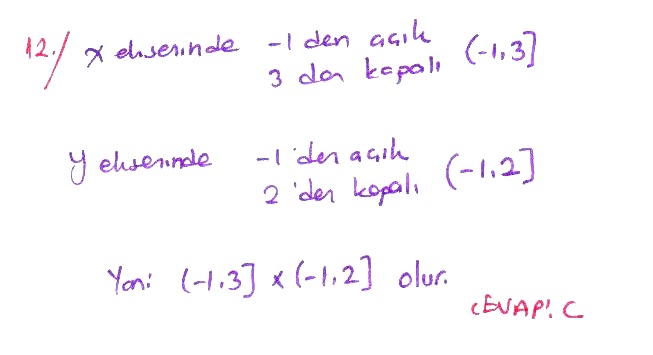 12./ x ekseninde -1 den açık (-1,3]
3 den kapalı
y ekseninde -1'den açık (-1,2]
2'den kapalı
Yani (-1,3] x (-1,2] olur.
CEVAP: C